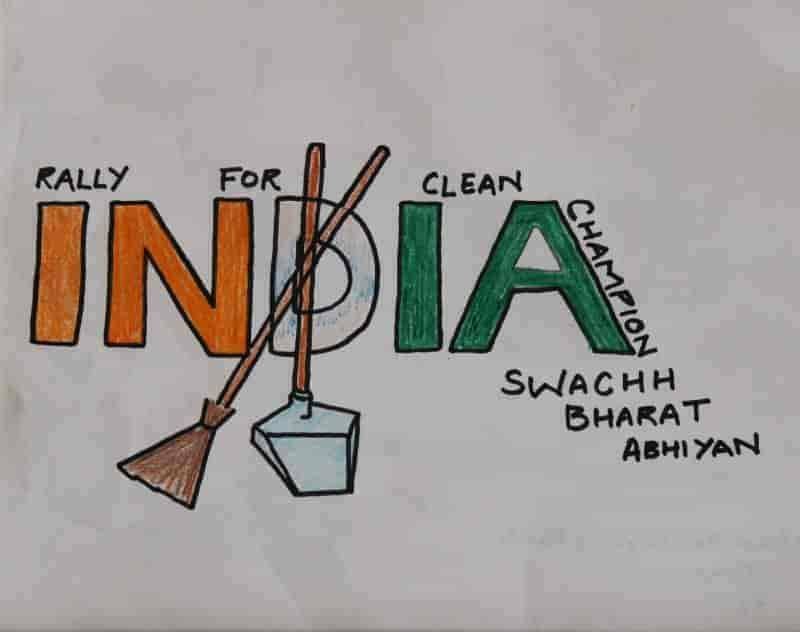 RALLY FOR CLEAN
INDIA
CHAMPION
SWACHH
BHARAT
ABHIYAN